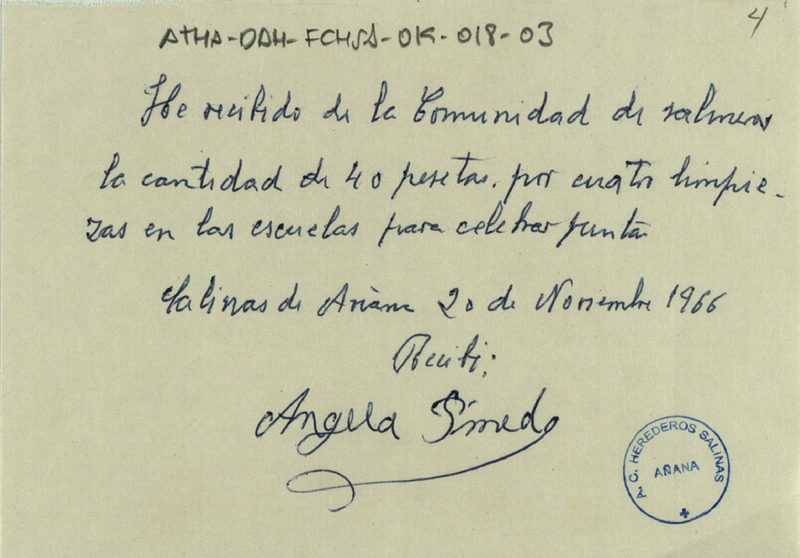 4
ATHA-DAH-FCHSA-OK-018-03
He recibido de la Comunidad de salineros
la cantidad de 40 pesetas. por cuatro limpie-
zas en las escuelas para celebrar junta
Salinas de Añana 20 de Noviembre 1966
Recibi:
Angela
A. C. HEREDEROS SALINAS
AÑANA